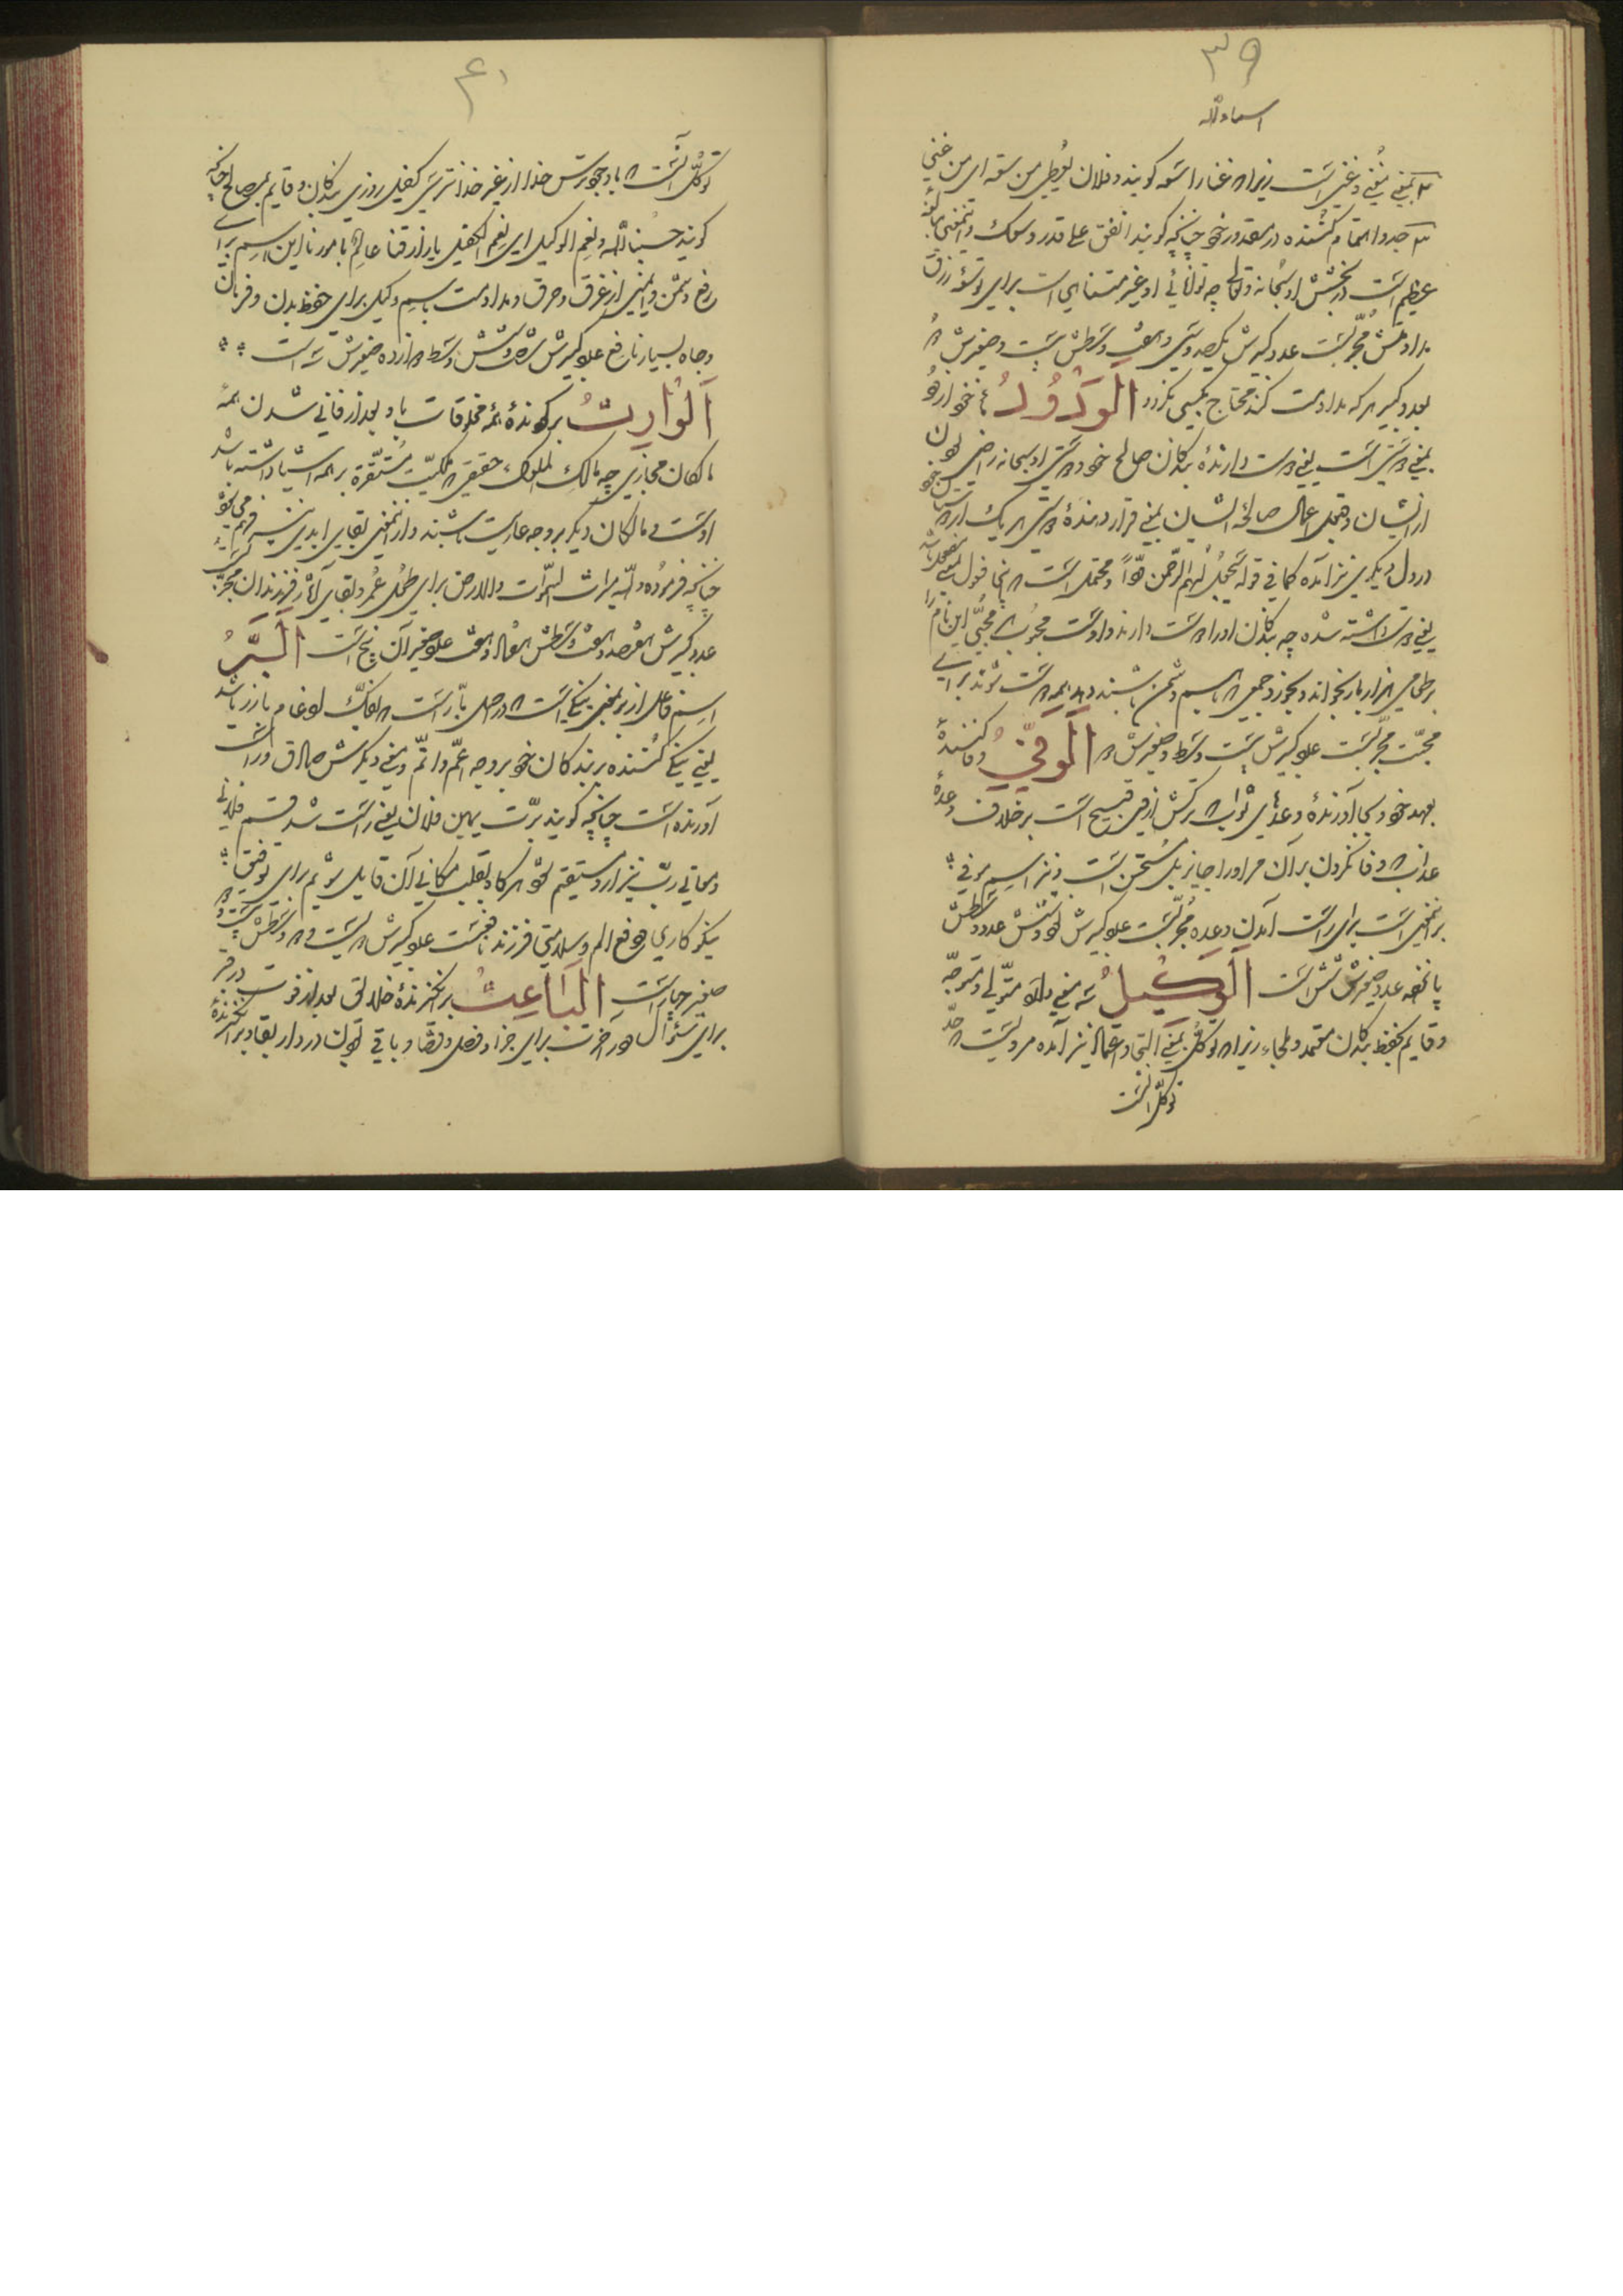 ۳۹
اسماءالله
بمعنی مغنی و غنی است زیرا که غنا را سعه کویند و فلان یعطی من سعه ای من غنی
جد و اهتمام کننده در مقدور خود چنانچه کویند انفق علی قدر وسعک
عظیم است در بخشش او سبحانه و تعالی چه توانائی او غیر متناهی است برای توسعه رزق
مداومتش مجربست عدد کبیرش یکصد و سی و هفت وسطش بیست و صغیرش
بعدد کبیر هر که مداومت کند محتاج بکسی نکردد اَلوَدُودُ
بمعنی دوستی است یعنی دوست دارندهٔ بندکان صالح خود و دوستی او سبحانه راضی بودن
از ایشان و قبول اعمال صالحهٔ ایشان بمعنی قرار دهندهٔ دوستی هر یک از
در دل دیکری نیز آمده کما فی قوله سیجعل لهم الرحمن ودّاً و محتملست که اینجا فعول بمعنی مفعول باشد
یعنی دوست داشته شده چه بندکان او را دوست دارند و اوست محبوب هر محبّی این نام را
بر طعامی هزار بار بخواند و بخورد جمعی که با هم دشمن باشند دهد همه دوست شوند برای
محبّت مجرّبست عدد کبیرش بیست وسط و صغیرش دو اَلوَفِیُّ وفا کنندهٔ
بعهد خود و بجا آورندهٔ وعدهای ثواب که ترکش ازو قبیح است بر خلاف وعدهٔ
عذاب که وفا نکردن بر آن مر او را جایز بل مستحسن است و نیز اسم موفی
بر این معنی است برای راست آمدن وعده مُجرّبست عدد کبیرش نود و شش عدد وسطش
پانزده عدد صغیرش شش است اَلوَکِیلُ سه معنی دارد متولّی و متوجّه
و قایم بحفظ بندکان معتمد و ملجاء زیرا که توکّل بمعنی التجا و اعتماد نیز آمده مرویست که حدّ
توکّل آنست
۴۰
توکّل آنست که با وجود ترس خدا از غیر خدا نترسی کفیل روزی بندکان و قایم بمصالح چنانچه
کویند حسبنا الله و نعم الوکیل ای نعم الکفیل بارزاقنا عالم بامورنا این اسم برای
رفع دشمن و ایمنی از غرق و حرق و مداومت باسم وکیل برای حفظ بدن و فرمان
و جاه بسیار نافع عدد کبیرش شصت و شش وسط دوازده صغیرش سه است
اَلوارِثُ برکردندهٔ همهٔ مخلوقات باو بعد از فانی شدن همهٔ
مالکان مجازی چه مالک الملوک حقیقی که ملکیّت مستقرّه بر همه اشیا داشته باشد
اوست و مالکان دیکر بر وجه عاریت باشند و از این معنی بقای ابدی نیز فهم می شود
چنانچه فرموده ولله میراث السموات والارض برای طول عمر و بقای آثار و فرزندان مجربست
عدد کبیرش هفتصد و هفت وسطش هفتاد و هفت عدد صغیر آن پنج است اَلبَرُّ
اسم فاعل از بر بمعنی نیکی است که در اصل بارّ است که بفکّ ادغام بارر باشد
یعنی نیکی کننده بر بندکان خود بر وجه اعمّ و اتمّ و معنی دیکرش صادق و راست
آورنده است چنانچه کویند برّت یمین فلان یعنی راست شد قسم فلانی
و معانی ربّ نیز از او مستفیم شود هرکاه بقلب مکانی آن قایل شویم برای توفیق
نیکوکاری و دفع الم و سلامتی فرزند نافعست عدد کبیرش دویست و دو وسطش بیست و دو
صغیر چهار است اَلباعِثُ برانکیزندهٔ خلایق بعد از فوت در قبر
برای سئوال و در آخرت برای جزاء و فصل و قضا و باقی بودن در دار بقا و برانکیزندهٔ